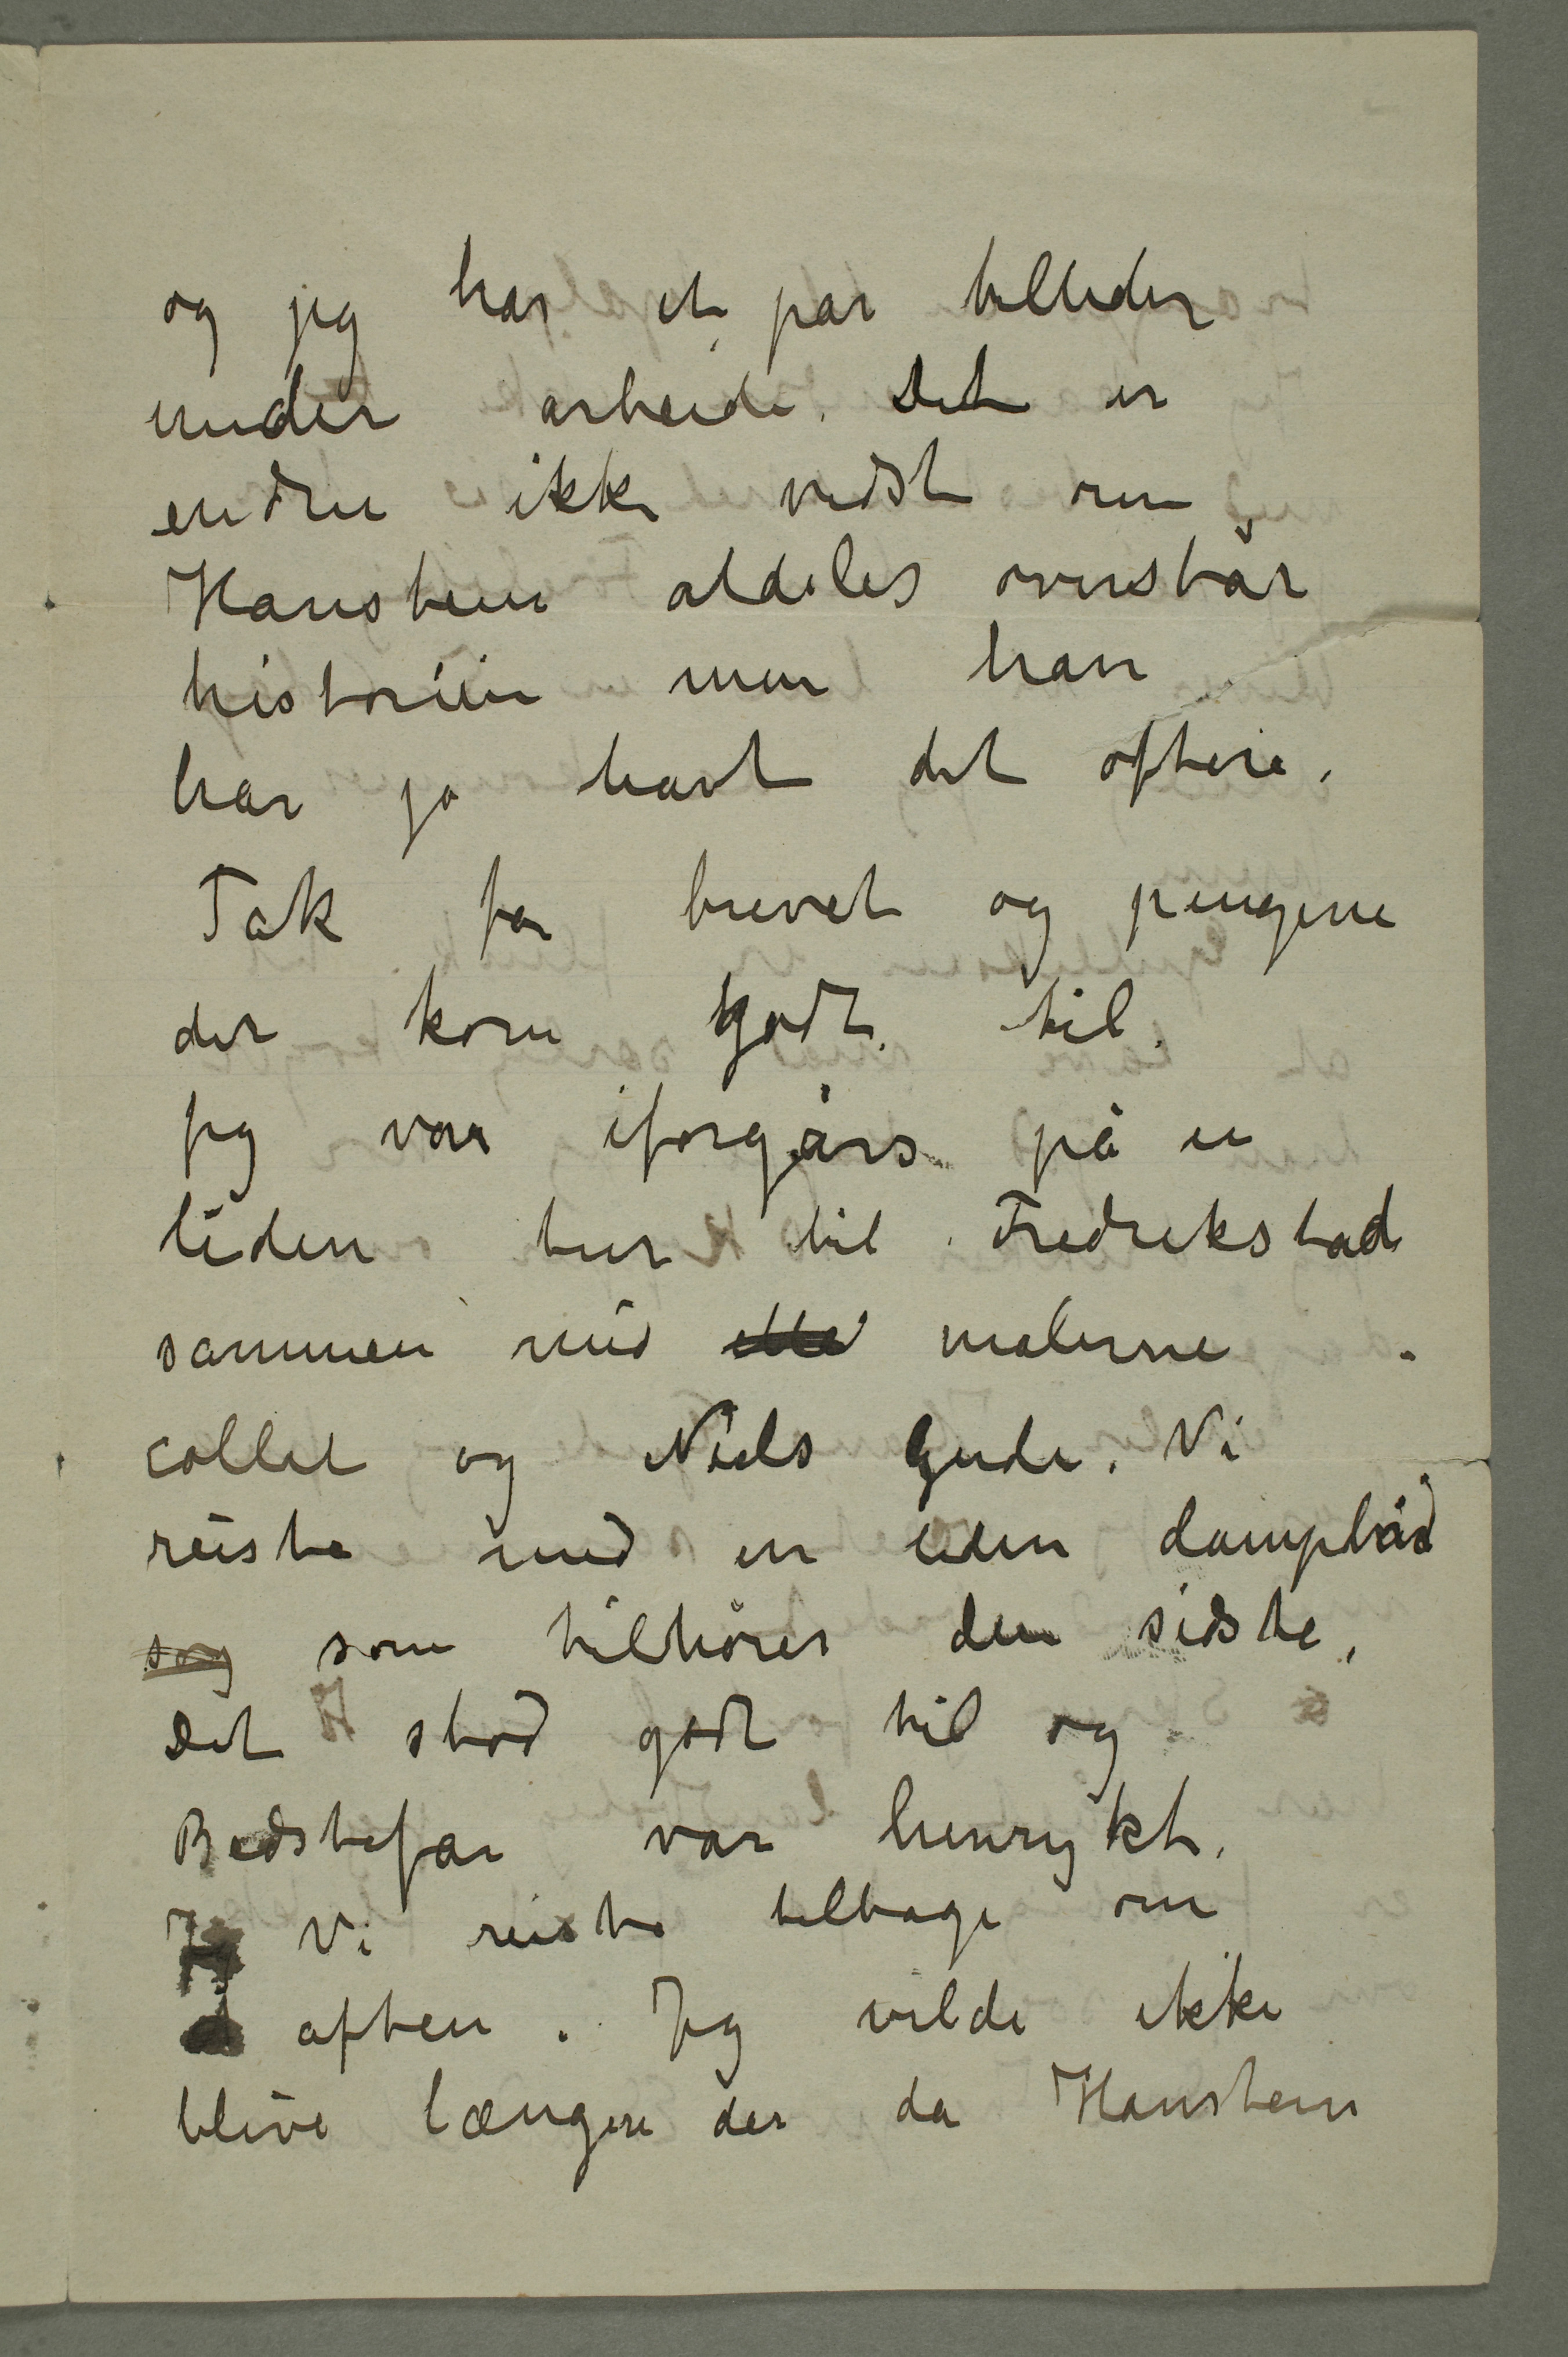 og jeg har et par billeder
under arbeide. Det er
endnu ikke vidst om
Hanstein aldeles overstår
historien men han
har jo havt det oftere.
Tak for brevet og pengene
der kom godt til.
Jeg var iforgårs på en
liden tur til Fredrikstad
sammen med malerne
Collet og Niels Gude. Vi
reiste med en liden dampbåd
sog som tilhører den sidste,
Det stod godt til og
Bedstefar var henrykt.
Jeg Vi reiste tilbage om
aften. Jeg vilde ikke
blive længere der da Hanstein